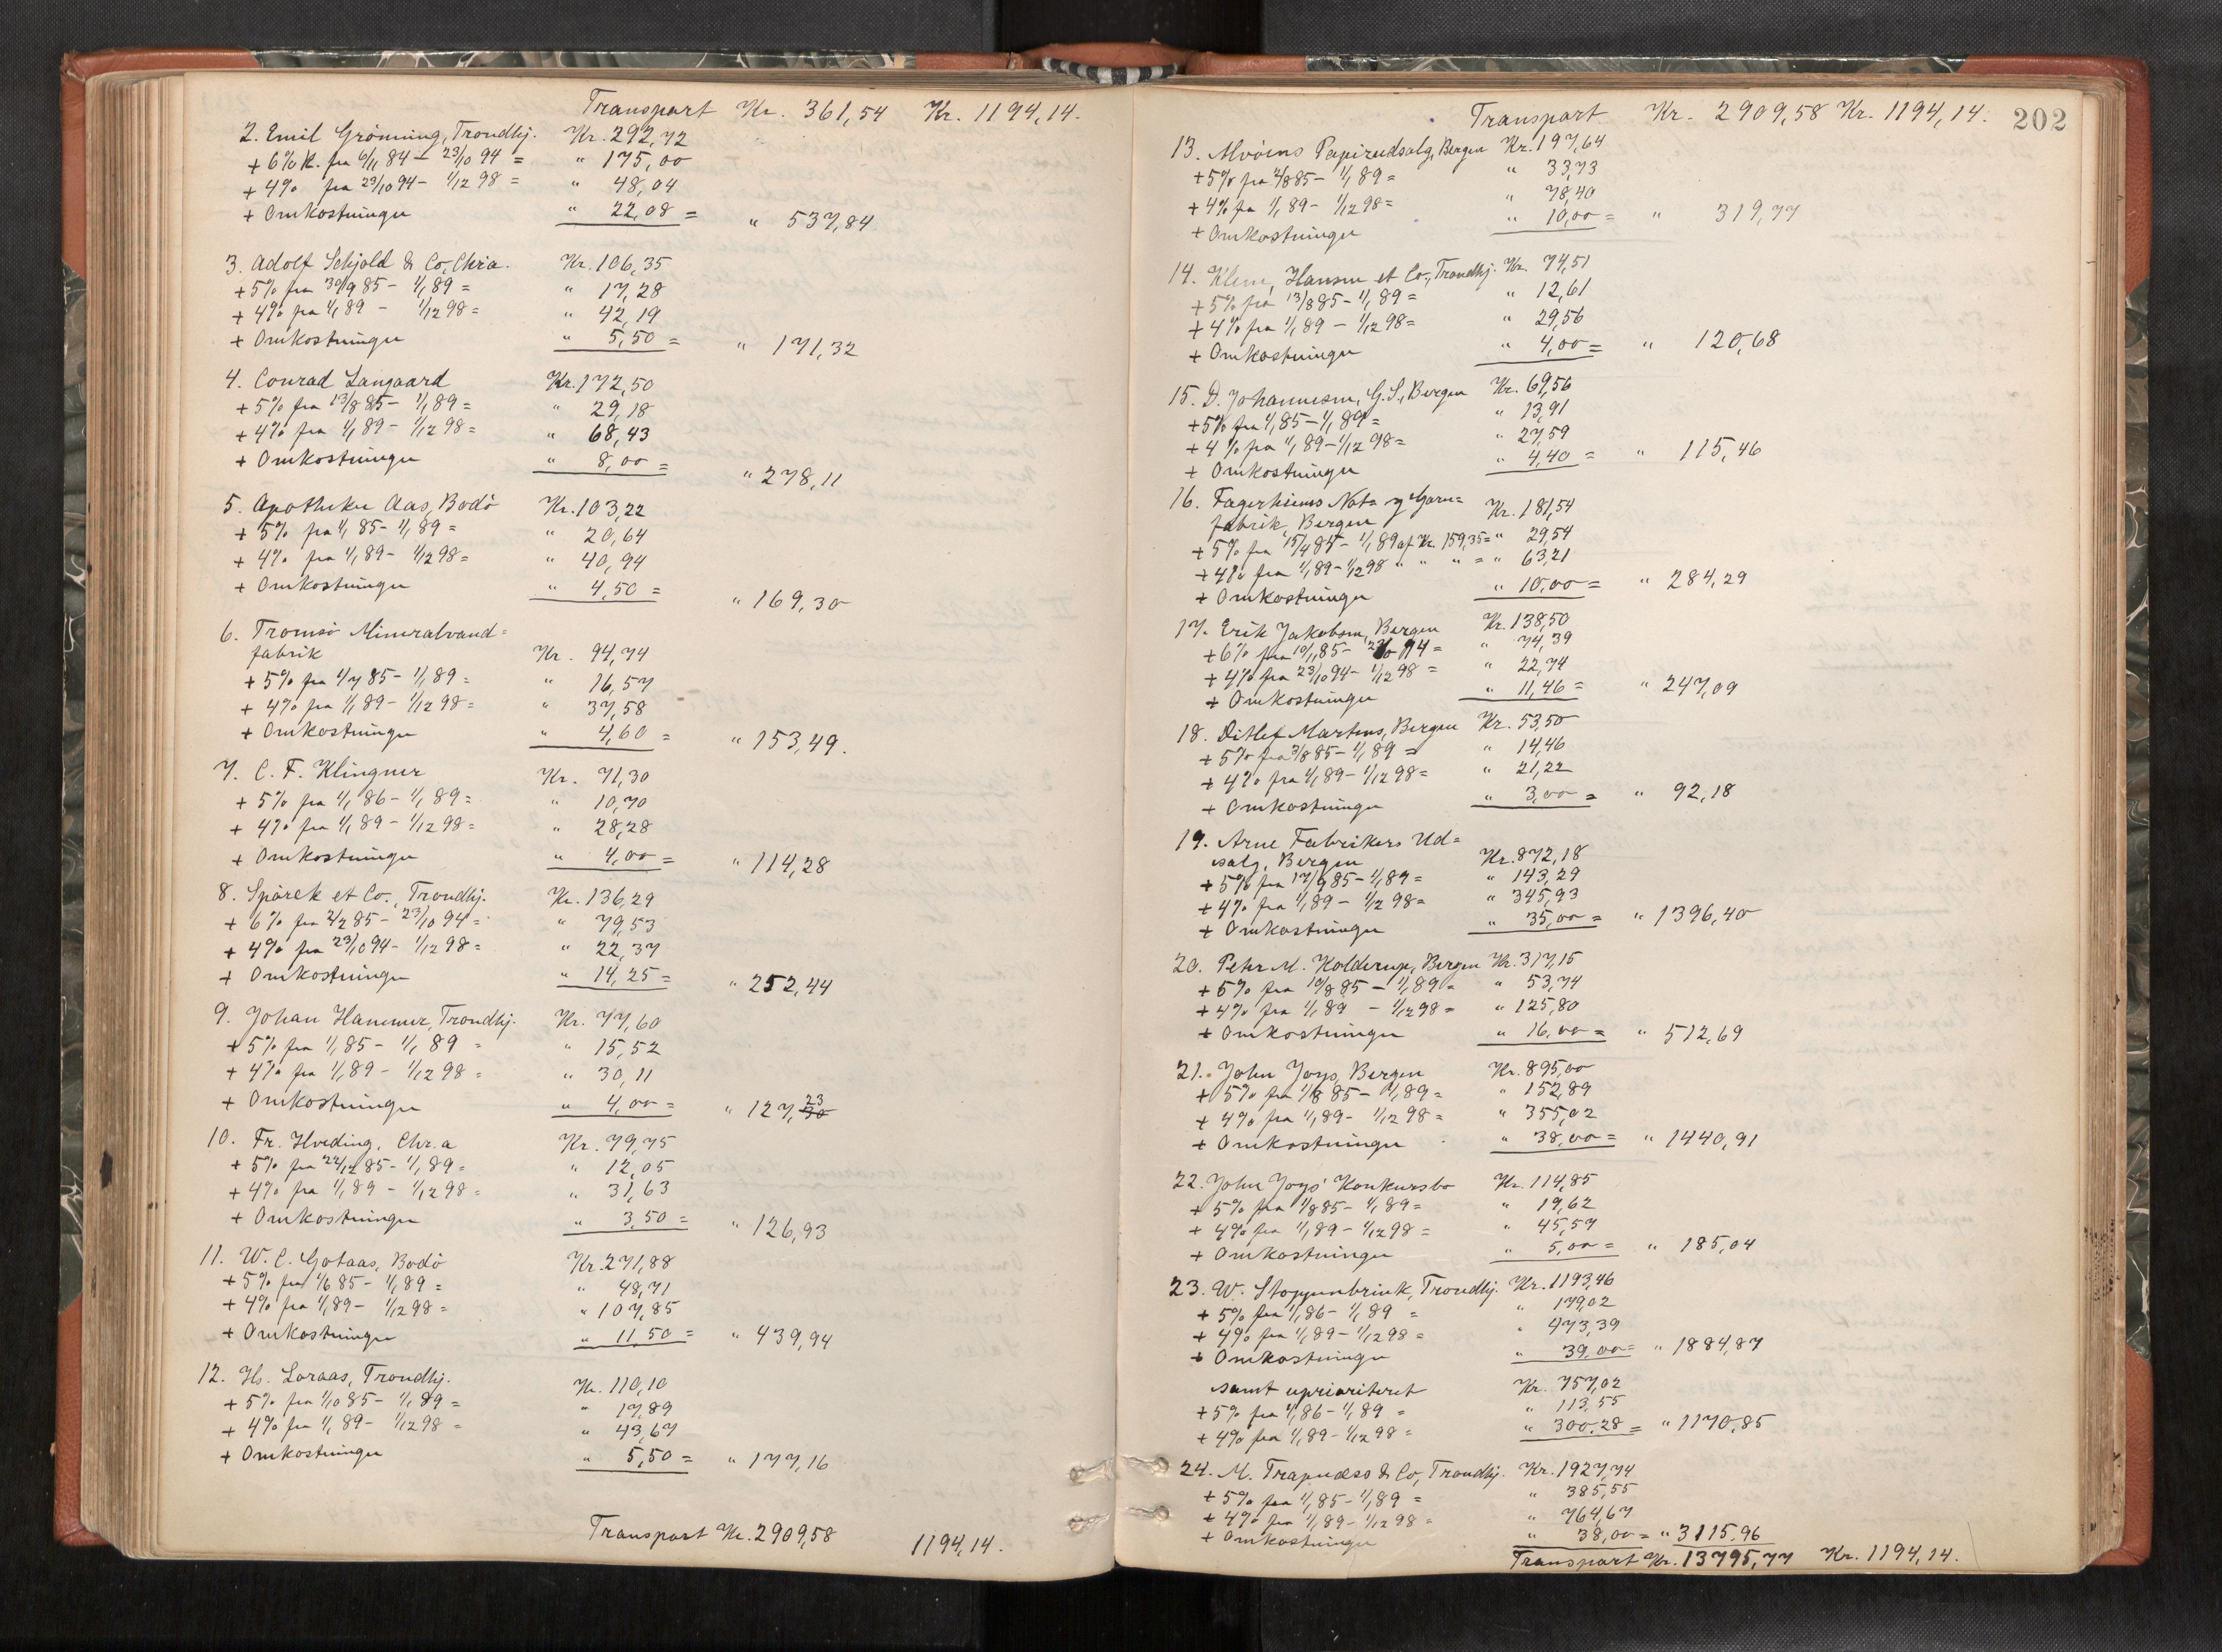 Transport Kr. 361,54 Kr. 1194,14.
2. Emil Grönning, Trondhj. Kr. 292,72
+ 6% R. fra 6/11 84 - 23/10 94 = " 175,00
+ 4% fra 23/10 94 - 1/12 98 = " 48,04
+ Omkostninger " 22,08 = " 537,84
3. Adolf Schjold & Co, Chria. Kr. 106,35
+ 5% fra 30/9 85 - 1/1 89 = " 17,28
+ 4% fra 1/1 89 - 1/12 98 = " 42,19
+ Omkostninger " 5,50 = " 171,32
4. Conrad Langaard Kr. 172,50
+ 5% fra 13/8 85 - 1/1 89 = " 29,18
+ 4% fra 1/1 89 - 1/12 98 = " 68,43
+ Omkostninger " 8,00 = " 278,11
5. Apotheker Aas, Bodö Kr. 103,22
+ 5% fra 1/1 85 - 1/1 89 = " 20,64
+ 4% fra 1/1 89 - 1/12 98 = " 40,94
+ Omkostninger " 4,50 = " 169,30
6. Tromsö Mineralvand=
fabrik Kr. 94,74
+ 5% fra 1/7 85 - 1/1 89 = " 16,57
+ 4% fra 1/1 89 - 1/12 98 = " 37,58
+ Omkostninger " 4,60 = " 153,49.
7. C. F. Klingner Kr. 71,30
+ 5% fra 1/1 86 - 1/1 89 = " 10,70
+ 4% fra 1/1 89 - 1/12 98 = " 28,28
+ Omkostninger " 4,00 = " 114,28
8. Spörck et Co., Trondhj. Kr. 136,29
+ 6% fra 2/2 85 - 23/10 94 = " 79,53
+ 4% fra 23/10 94 - 1/12 98 = " 22,37
+ Omkostninger " 14,25 = " 252,44
9. Johan Hammer, Trondhj. Kr. 77,60
+ 5% fra 1/1 85 - 1/1 89 = " 15,52
+ 4% fra 1/1 89 - 1/12 98 = " 30,11
+ Omkostninger " 4,00 = " 127,23
10. Fr. Hveding, Chr.a Kr. 79,75
+ 5% fra 22/12 85 - 1/1 89 = " 12,05
+ 4% fra 1/1 89 - 1/12 98 = " 31,63
+ Omkostninger " 3,50 = " 126,93
11. W. C. Gotaas, Bodö Kr. 271,88
+ 5% fra 1/6 85 - 1/1 89 = " 48,71
+ 4% fra 1/1 89 - 1/12 98 = " 107,85
+ Omkostninger " 11,50 = " 439,94
12. H. Loraas, Trondhj. Kr. 110,10
+ 5% fra 1/10 85 - 1/1 89 = " 17,89
+ 4% fra 1/1 89 - 1/12 98 = " 43,67
+ Omkostninger " 5,50 = " 177,16
Transport Kr. 2909,58 1194,14.
Transport Kr. 2909,58 Kr. 1194,14. 202
13. Alvöens Papirudsalg, Bergen Kr. 197,64
+ 5% fra 2/8 85 - 1/1 89 = " 33,73
+ 4% fra 1/1 89 - 1/12 98 = " 78,40
+ Omkostninger " 10,00 = " 319,77
14. Klem, Hansen et Co., Trondhj. Kr. 74,51
+ 5% fra 13/8 85 - 1/1 89 = " 12,61
+ 4% fra 1/1 89 - 1/12 98 = " 29,56
+ Omkostninger " 4,00 = " 120,68
15. D. Johannesen, G.S., Bergen Kr. 69,56
+ 5% fra 1/1 85 - 1/1 89 = " 13,91
+ 4% fra 1/1 89 - 1/12 98 = " 27,59
+ Omkostninger " 4,40 = " 115,46
16. Fagerheims Nota og Garn=
fabrik, Bergen Kr. 181,54
+ 5% fra 15/4 85 - 1/1 89 af Kr. 159,35 = " 29,54
+ 4% fra 1/1 89 - 1/12 98 " " " = " 63,21
+ Omkostninger " 10,00 = " 284,29
17. Erik Jakobsen, Bergen Kr. 138,50
+ 6% fra 10/11 85 - 23/10 94 = " 74,39
+ 4% fra 23/10 94 - 1/12 98 = " 22,74
+ Omkostninger " 11,46 = " 247,09
18. Ditlef Martens, Bergen Kr. 53,50
+ 5% fra 3/8 85 - 1/1 89 = " 14,46
+ 4% fra 1/1 89 - 1/12 98 = " 21,22
+ Omkostninger " 3,00 = " 92,18
19. Arne Fabrikers Ud=
salg, Bergen Kr. 872,18
+ 5% fra 17/9 85 - 1/1 89 = " 143,29
+ 4% fra 1/1 89 - 1/12 98 = " 345,93
+ Omkostninger " 35,00 = " 1396,40
20. Peter M. Kolderup, Bergen Kr. 317,15
+ 5% fra 10/8 85 - 1/1 89 = " 53,74
+ 4% fra 1/1 89 - 1/12 98 = " 125,80
+ Omkostninger " 16,00 = " 512,69
21. John Joys, Bergen Kr. 895,00
+ 5% fra 1/8 85 - 1/1 89 = " 152,89
+ 4% fra 1/1 89 - 1/12 98 = " 355,02
+ Omkostninger " 38,00 = " 1440,91
22. John Joys' Konkursbo Kr. 114,85
+ 5% fra 1/8 85 - 1/1 89 = " 19,62
+ 4% fra 1/1 89 - 1/12 98 = " 45,57
+ Omkostninger " 5,00 = " 185,04
23. W. Stoppenbrink, Trondhj. Kr. 1193,46
+ 5% fra 1/1 86 - 1/1 89 = " 179,02
+ 4% fra 1/1 89 - 1/12 98 = " 473,39
+ Omkostninger " 39,00 = " 1884,87
samt uprioriteret Kr. 757,02
+ 5% fra 1/1 86 - 1/1 89 = " 113,55
+ 4% fra 1/1 89 - 1/12 98 = " 300,28 = " 1170,85
24. M. Trapness & Co, Trondhj. Kr. 1927,74
+ 5% fra 1/1 85 - 1/1 89 = " 385,55
+ 4% fra 1/1 89 - 1/12 98 = " 764,67
+ Omkostninger " 38,00 = " 3115,96
Transport Kr. 13795,77 Kr. 1194,14.